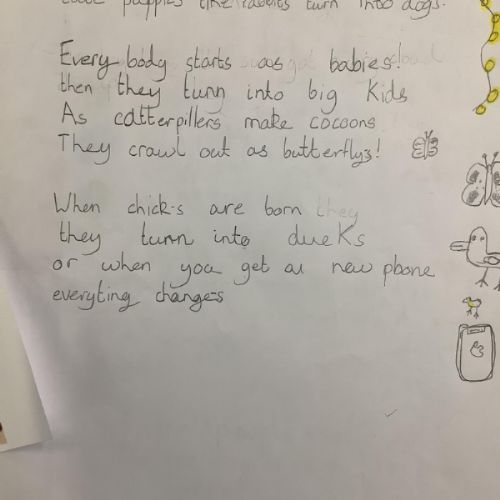 puppies like rabbits turn into dogs.
Every body starts as babies!
then they turn into big kids
As catterpillers make cocoons
They crawl out as butterflys!
When chicks are born they
they turn into ducks
or when you get a new phone
everyting changes